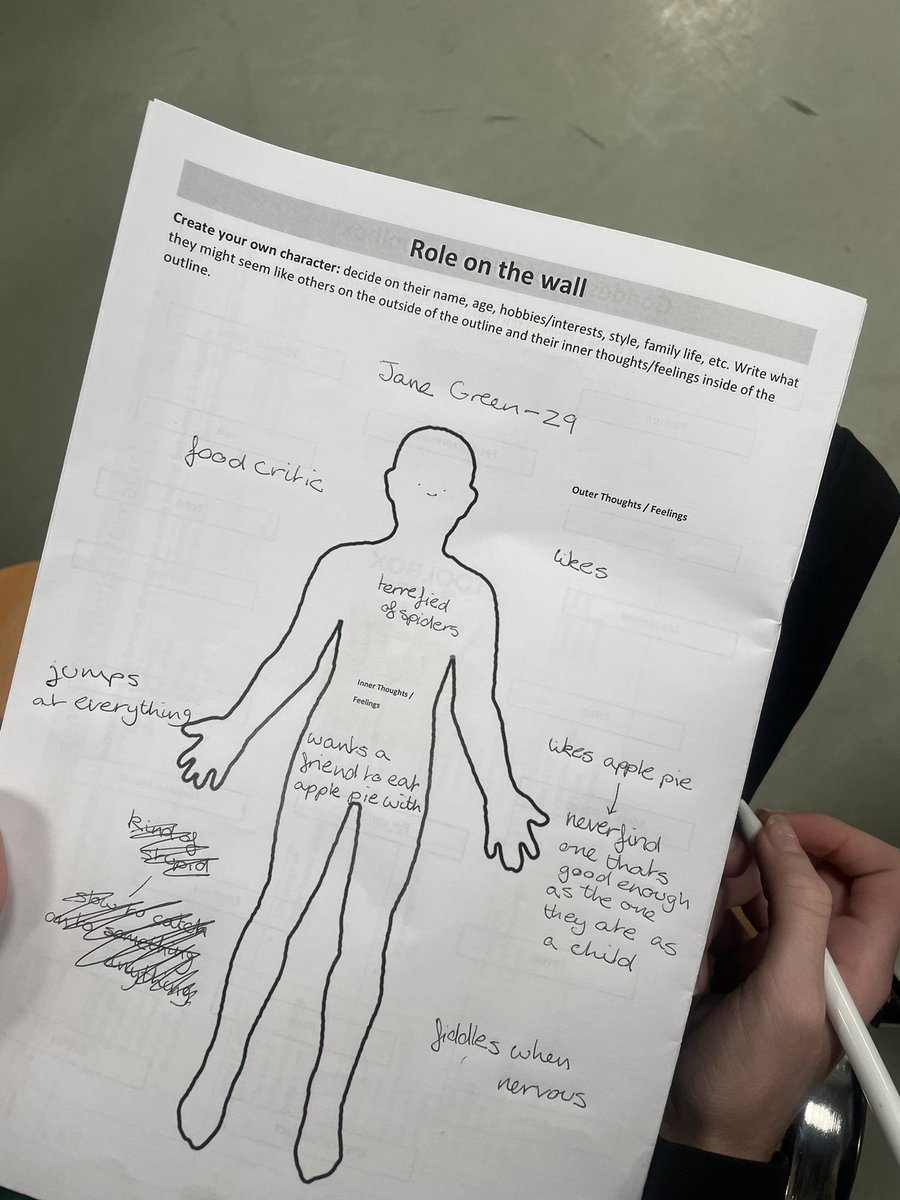 Role on the wall
Create your own character: decide on their name, age, hobbies/interests, style, family life, etc. Write what
they might seem like others on the outside of the outline and their inner thoughts/feelings inside of the
outline.
Jane Green - 29
food critic
Outer Thoughts / Feelings
likes
terrefied
of spiders
jumps
at everything
Inner Thoughts /
Feelings
wants a
friend to eat
apple pie with
likes apple pie
never find
one thats
good enough
as the one
they ate as
a child
kind of
stupid
slow to catch
onto something
anything
fiddles when
nervous